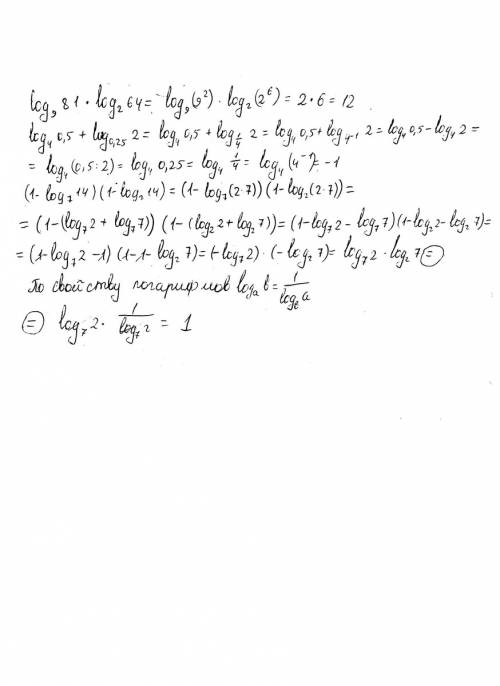 log₉ 81 · log₂ 64 = log₉(9²) · log₂(2⁶) = 2 · 6 = 12
log₄ 0,5 + log₀,₂₅ 2 = log₄ 0,5 + log_{1/4} 2 = log₄ 0,5 + log_{4⁻¹} 2 = log₄ 0,5 - log₄ 2 =
= log₄ (0,5 : 2) = log₄ 0,25 = log₄ 1/4 = log₄ (4⁻¹) = -1
(1 - log₇ 14) (1 - log₂ 14) = (1 - log₇(2·7)) (1 - log₂(2·7)) =
= (1 - (log₇ 2 + log₇ 7)) (1 - (log₂ 2 + log₂ 7)) = (1 - log₇ 2 - log₇ 7)(1 - log₂ 2 - log₂ 7) =
= (1 - log₇ 2 - 1) (1 - 1 - log₂ 7) = (-log₇ 2) · (-log₂ 7) = log₇ 2 · log₂ 7 =
По свойству логарифмов logₐ b = 1/log_b a
= log₇ 2 · 1/log₇ 2 = 1